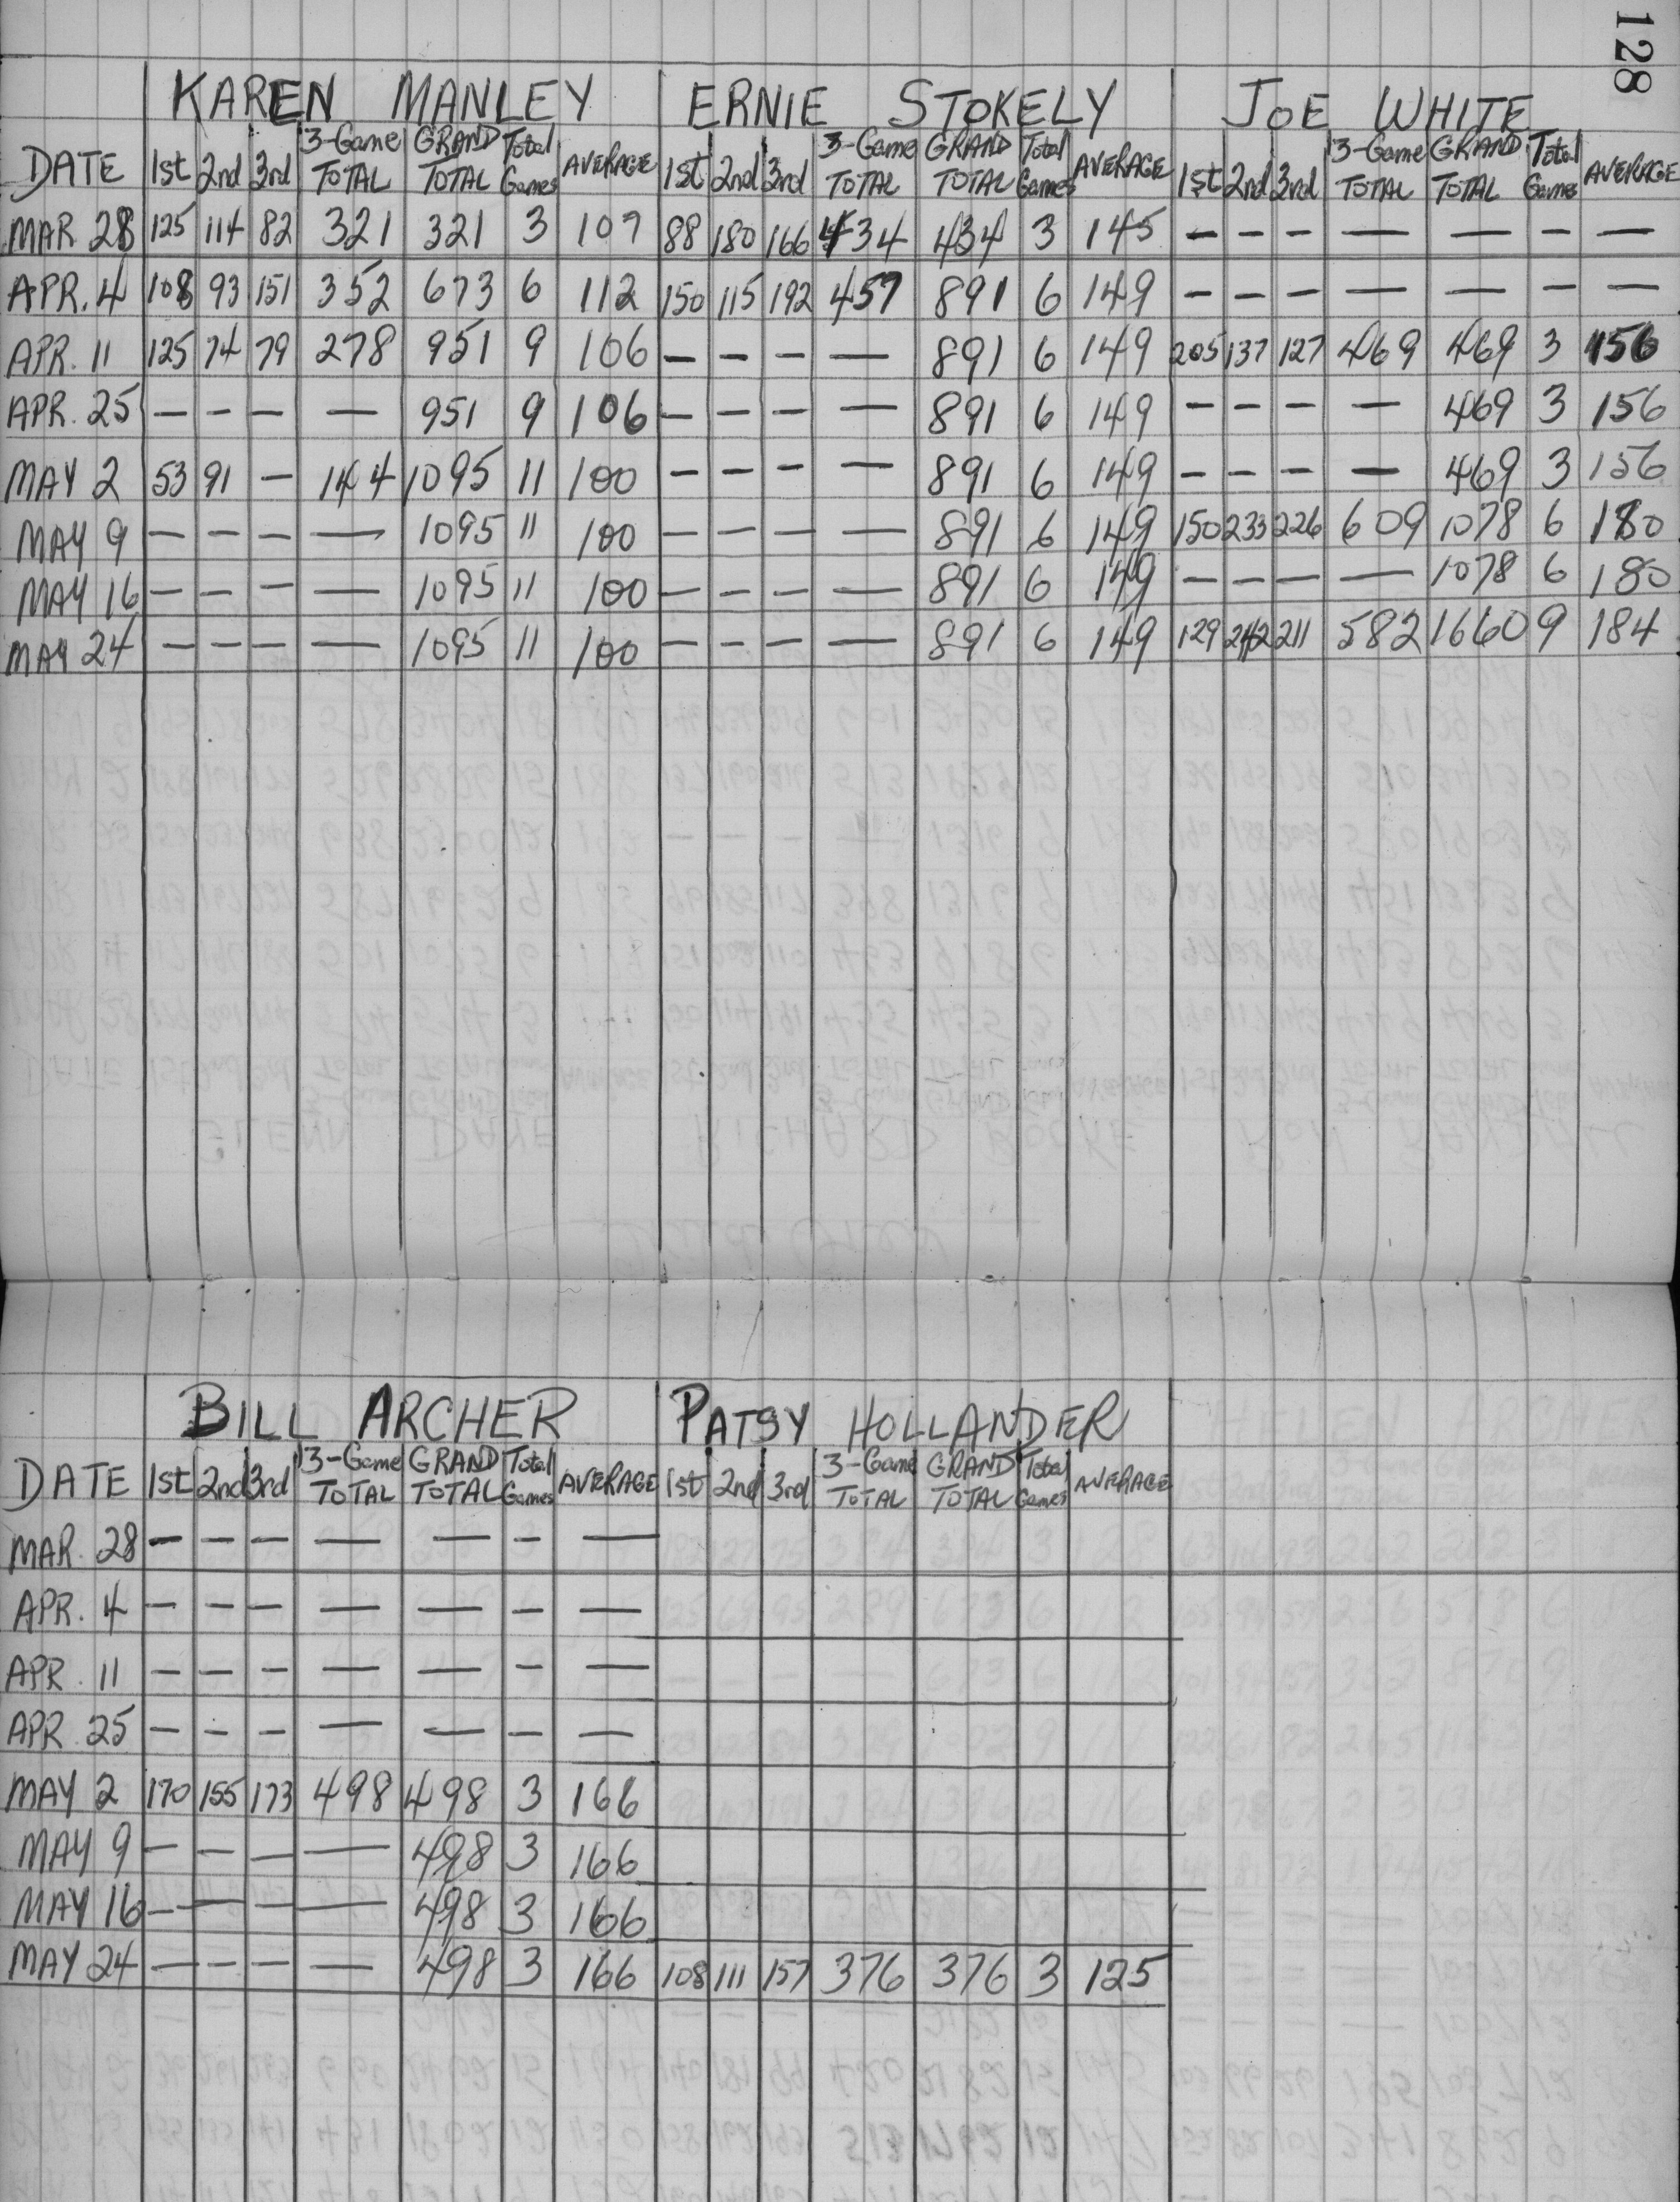 128
KAREN MANLEY ERNIE STOKELY JOE WHITE
DATE 1st 2nd 3rd 3-Game TOTAL GRAND TOTAL Total Games AVERAGE 1st 2nd 3rd 3-Game TOTAL GRAND TOTAL Total Games AVERAGE 1st 2nd 3rd 3-Game TOTAL GRAND TOTAL Total Games AVERAGE
MAR 28 125 114 82 321 321 3 107 88 180 166 434 434 3 145 — — — — — — —
APR. 4 108 93 151 352 673 6 112 150 115 192 457 891 6 149 — — — — — — —
APR. 11 125 74 79 278 951 9 106 — — — — 891 6 149 205 137 127 469 469 3 156
APR. 25 — — — — 951 9 106 — — — — 891 6 149 — — — — 469 3 156
MAY 2 53 91 — 144 1095 11 100 — — — — 891 6 149 — — — — 469 3 156
MAY 9 — — — — 1095 11 100 — — — — 891 6 149 150 233 226 609 1078 6 180
MAY 16 — — — — 1095 11 100 — — — — 891 6 149 — — — — 1078 6 180
MAY 24 — — — — 1095 11 100 — — — — 891 6 149 129 242 211 582 1660 9 184
BILL ARCHER PATSY HOLLANDER
DATE 1st 2nd 3rd 3-Game TOTAL GRAND TOTAL Total Games AVERAGE 1st 2nd 3rd 3-Game TOTAL GRAND TOTAL Total Games AVERAGE
MAR. 28 — — — — — — —
APR. 4 — — — — — — —
APR. 11 — — — — — — —
APR. 25 — — — — — — —
MAY 2 170 155 173 498 498 3 166
MAY 9 — — — — 498 3 166
MAY 16 — — — — 498 3 166
MAY 24 — — — — 498 3 166 108 111 157 376 376 3 125